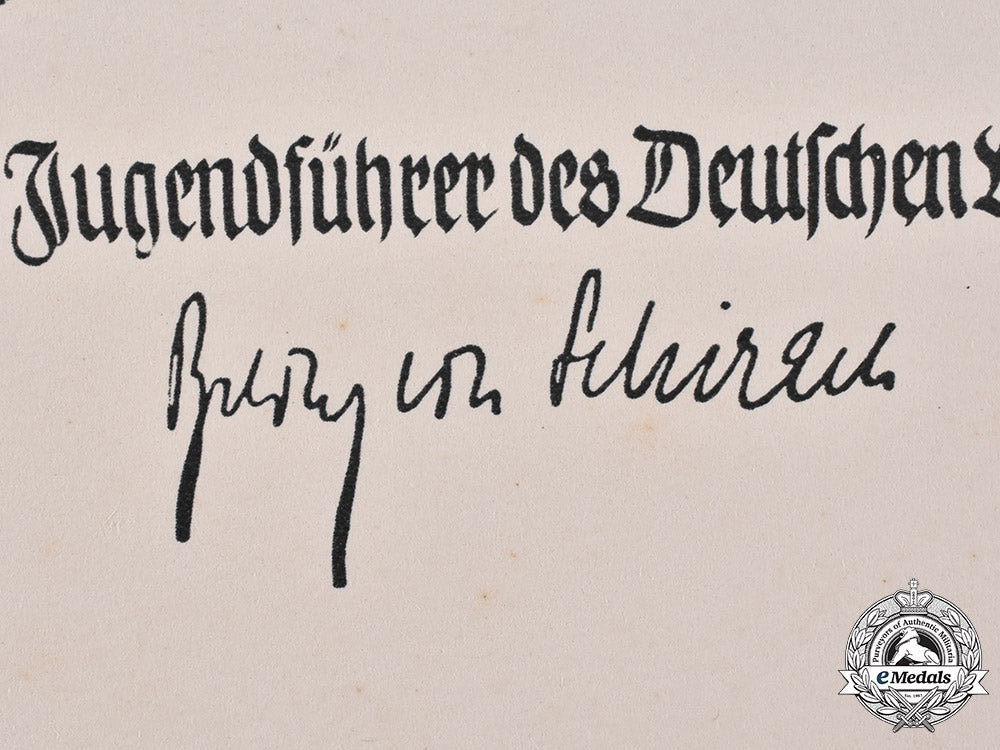 Jugendführer des Deutschen
Baldur von Schirach
Purveyors of Authentic Militaria
eMedals